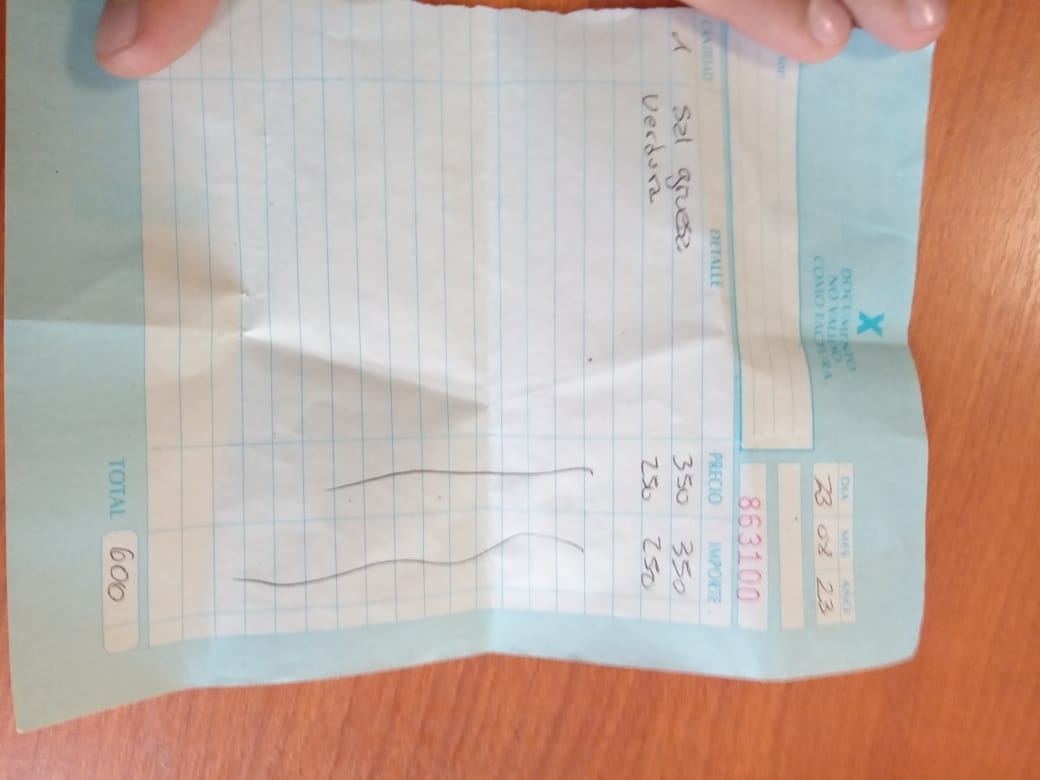 X
DOCUMENTO
NO VALIDO
COMO FACTURA
DIA MES AÑO
23 08 23
863100
CANTIDAD DETALLE PRECIO IMPORTE
1 Sal gruesa 350 350
Verdura 250 250
TOTAL 600